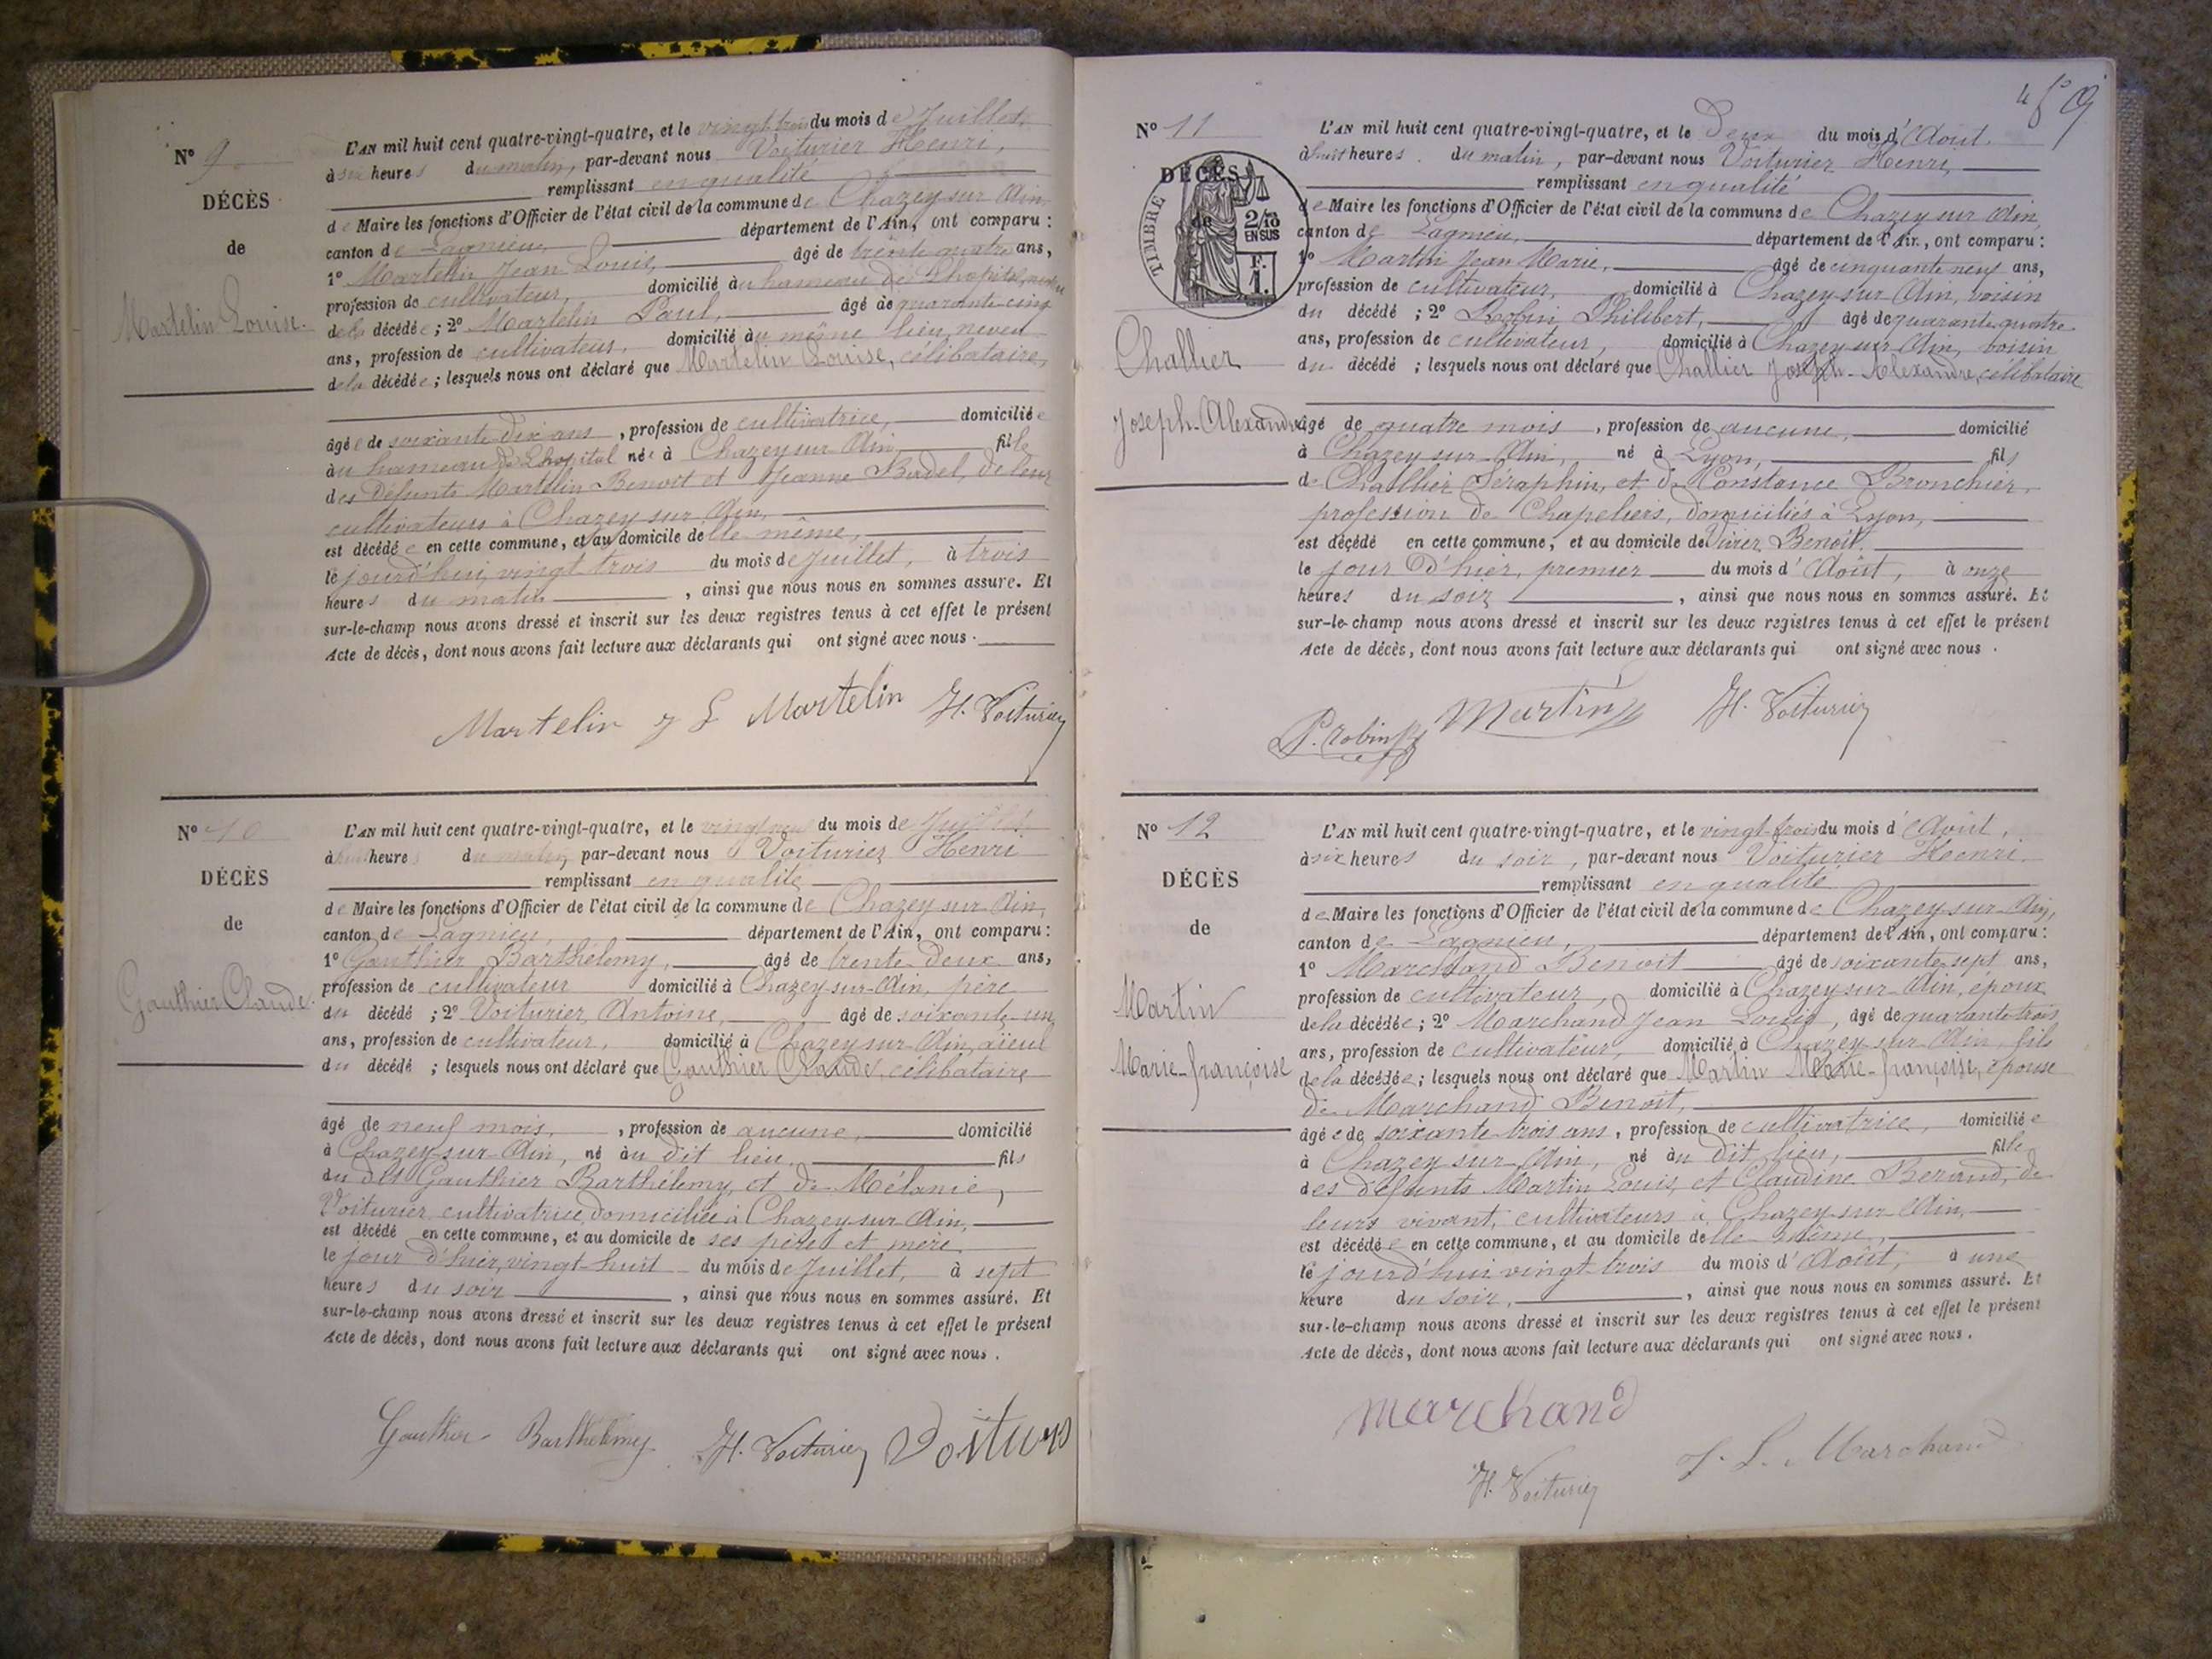 Nº 9
DÉCÈS
de
Martelin Louise.
L'AN mil huit cent quatre-vingt-quatre, et le vingt trois du mois de Juillet,
à six heures du matin, par-devant nous Voiturier Henri,
remplissant en qualité
de Maire les fonctions d'Officier de l'état civil de la commune de Chazey sur Ain,
canton de Lagnieu, département de l'Ain, ont comparu :
1º Martelin Jean Louis, âgé de trente quatre ans,
profession de cultivateur, domicilié au hameau de Lhopital, neveu
de la décédée ; 2º Martelin Paul, âgé de quarante cinq
ans, profession de cultivateur, domicilié au même lieu, neveu
de la décédée ; lesquels nous ont déclaré que Martelin Louise, célibataire,
âgée de soixante dix ans, profession de cultivatrice, domiciliée
au hameau de Lhopital née à Chazey sur Ain, fille
des défunts Martelin Benoit et Jeanne Badel, de leur
cultivateurs à Chazey sur Ain,
est décédée en cette commune, et au domicile de lle même,
le jourd'hui vingt trois du mois de Juillet, à trois
heures du matin, ainsi que nous nous en sommes assuré. Et
sur-le-champ nous avons dressé et inscrit sur les deux registres tenus à cet effet le présent
Acte de décès, dont nous avons fait lecture aux déclarants qui ont signé avec nous.
Martelin J L Martelin H. Voiturier
Nº 10
DÉCÈS
de
Gauthier Claude.
L'AN mil huit cent quatre-vingt-quatre, et le vingt neuf du mois de Juillet,
à heures du matin, par-devant nous Voiturier Henri
remplissant en qualité
de Maire les fonctions d'Officier de l'état civil de la commune de Chazey sur Ain,
canton de Lagnieu, département de l'Ain, ont comparu :
1º Gauthier Barthélemy, âgé de trente deux ans,
profession de cultivateur domicilié à Chazey-sur-Ain, père
du décédé ; 2º Voiturier Antoine, âgé de soixante-un
ans, profession de cultivateur, domicilié à Chazey-sur-Ain, aïeul
du décédé ; lesquels nous ont déclaré que Gauthier Claude, célibataire
âgé de neuf mois, profession de aucune, domicilié
à Chazey-sur-Ain, né au dit lieu, fils
du dit Gauthier Barthélemy, et de Mélanie,
Voiturier cultivatrice, domiciliée à Chazey-sur-Ain,
est décédé en cette commune, et au domicile de ses père et mère
le jour d'hier, vingt-huit du mois de Juillet, à sept
heures du soir, ainsi que nous nous en sommes assuré. Et
sur-le-champ nous avons dressé et inscrit sur les deux registres tenus à cet effet le présent
Acte de décès, dont nous avons fait lecture aux déclarants qui ont signé avec nous.
Gauthier Barthélemy H. Voiturier
Nº 11
DÉCÈS
de
TIMBRE
2/10
EN SUS
F.
1.
Challier
Joseph-Alexandre
L'AN mil huit cent quatre-vingt-quatre, et le Deux du mois d'Aout.
à huit heures du matin, par-devant nous Voiturier Henri,
remplissant en qualité
de Maire les fonctions d'Officier de l'état civil de la commune de Chazey sur Ain,
canton de Lagnieu, département de l'Ain, ont comparu :
1º Martin Jean Marie, âgé de cinquante neuf ans,
profession de cultivateur, domicilié à Chazey-sur-Ain, voisin
du décédé ; 2º Robin Philibert, âgé de quarante quatre
ans, profession de cultivateur, domicilié à Chazey-sur-Ain, voisin
du décédé ; lesquels nous ont déclaré que Challier Joseph-Alexandre, célibataire
âgé de quatre mois, profession de aucune, domicilié
à Chazey-sur-Ain, né à Lyon, fils
de Challier Séraphin, et de Constance Bronchier,
profession de Chapeliers, domiciliés à Lyon,
est décédé en cette commune, et au domicile de Benoit.
le jour d'hier, premier du mois d'Août, à onze
heures du soir, ainsi que nous nous en sommes assuré. Et
sur-le-champ nous avons dressé et inscrit sur les deux registres tenus à cet effet le présent
Acte de décès, dont nous avons fait lecture aux déclarants qui ont signé avec nous.
P. robin Martin H. Voiturier
Nº 12
DÉCÈS
de
Martin
Marie-françoise
L'AN mil huit cent quatre-vingt-quatre, et le vingt-trois du mois d'Août,
à six heures du soir, par-devant nous Voiturier Henri.
remplissant en qualité
de Maire les fonctions d'Officier de l'état civil de la commune de Chazey-sur-Ain,
canton de Lagnieu, département de l'Ain, ont comparu :
1º Marchand Benoit âgé de soixante sept ans,
profession de cultivateur, domicilié à Chazey-sur-Ain, époux
de la décédée ; 2º Marchand Jean Louis, âgé de quarante trois
ans, profession de cultivateur, domicilié à Chazey-sur-Ain, fils
de la décédée ; lesquels nous ont déclaré que Martin Marie-françoise, épouse
de Marchand Benoit,
âgée de soixante trois ans, profession de cultivatrice, domiciliée
à Chazey sur Ain, né au dit lieu, fille
des défunts Martin Louis, et Claudine Berand, de
leurs vivant, cultivateurs à Chazey-sur-Ain,
est décédée en cette commune, et au domicile de lle même,
le jourd'hui vingt trois du mois d'Août, à une
heure du soir, ainsi que nous nous en sommes assuré. Et
sur-le-champ nous avons dressé et inscrit sur les deux registres tenus à cet effet le présent
Acte de décès, dont nous avons fait lecture aux déclarants qui ont signé avec nous.
marchand
H. Voiturier J. L. Marchand